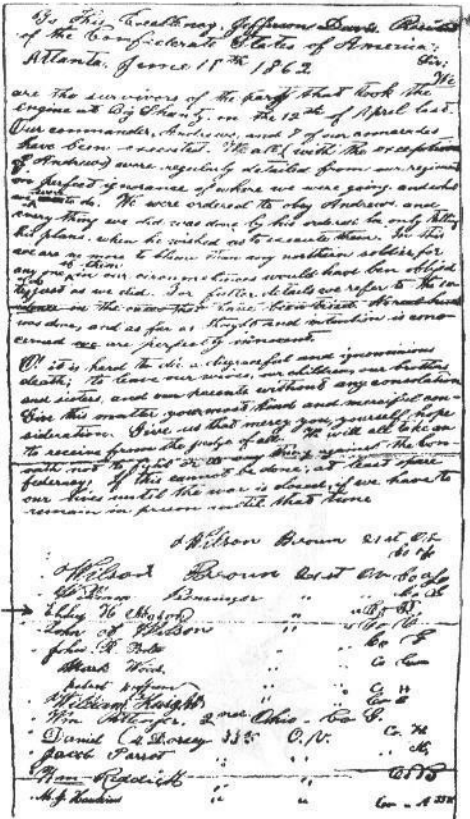 To His Excellency, Jefferson Davis, President
of the Confederate States of America;
Atlanta, June 18th 1862
Sir; We
are the survivors of the party that took the
engine at Big Shanty, on the 12th of April last.
Our commander, Andrews, and 7 of our comrades
have been executed. We all (with the exception
of Andrews) were regularly detailed from our regiments
in perfect ignorance of where we were going and what
we were to do. We were ordered to obey Andrews, and
every thing we did was done by his orders, he only telling
his plans, when he wished us to execute them. In this
we are no more to blame than any northern soldier, for
any one of them in our circumstances would have been obliged
to just as we did. For fuller details we refer to the
in the cases that have been tried. No real harm
was done, and as far as thought and intention is con-
cerned we are perfectly innocent.
O! it is hard to die a disgraceful and ignominious
death; to leave our wives, our children, our brothers
and sisters, and our parents without any consolation
Give this matter your most kind and merciful con-
sideration. Give us that mercy you, yourself, hope
to receive from the judge of all. We will all take an
oath not to fight or do any thing against the Con-
federacy; If this cannot be done, at least spare
our lives until the war is closed, if we have to
remain in prison until that time
Wilson Brown 21st O.V.
Co F
Wilson Brown 21st O.V. Co F
Bensinger " " Co G
Elihu H Mason " " Co K
John A Wilson " " Co C
John R. Porter Co G
Mark Wood Co
Robert Buffum Co H
William Knight " " Co E
Wm Pittenger, 2nd Ohio - Co G.
Daniel A Dorsey 33d O.V. Co. H
Jacob Parrot " " " K,
Wm Reddick " " Co B
M. J. Hawkins " " Co - A 33d